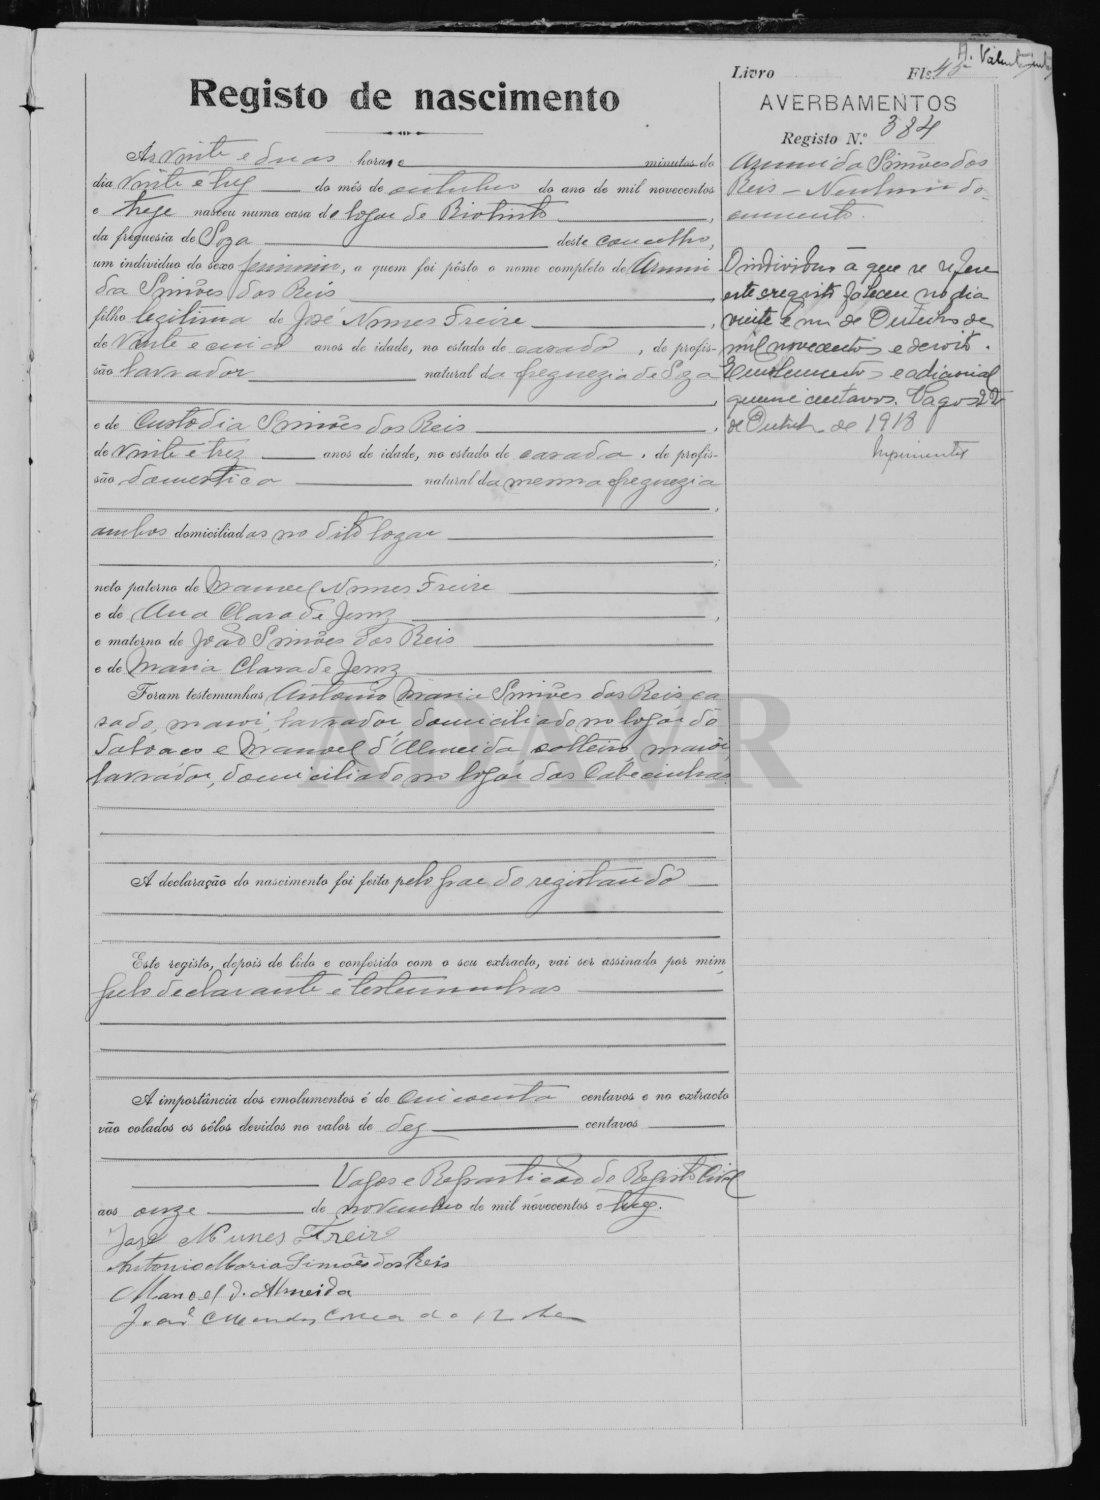 A. Valente
Livro Fls. 45
Registo de nascimento
AVERBAMENTOS
Registo N.º 384
Às vinte e duas horas e minutos do
dia vinte e trez do mês de outubro do ano de mil novecentos
e treze nasceu numa casa do logar de Riotinto,
da freguesia de Soza deste concelho,
um individuo do sexo feminino, a quem foi pôsto o nome completo de Armin
da Simões dos Reis,
filho legitima de José Nunes Freire,
de vinte e cinco anos de idade, no estado de casado, de profis-
são lavrador natural da freguezia de Soza
,
e de Custodia Simões dos Reis,
de vinte e trez anos de idade, no estado de casada, de profis-
são domestica natural da mesma freguezia
,
ambos domiciliados no dito logar
;
neto paterno de Manoel Nunes Freire
e de Ana Clara de Jesus,
e materno de João Simões dos Reis
e de Maria Clara de Jesus
Foram testemunhas Antonio Maria Simões dos Reis, ca
sado, maior, lavrador, domiciliado no logar do
Salvaco e Manoel d'Almeida, solteiro, maior,
lavrador, domiciliado no logar das Cabecinhas
A declaração do nascimento foi feita pelo pae do registando
Este registo, depois de lido e conferido com o seu extracto, vai ser assinado por mim,
pelo declarante e testemunhas
A importância dos emolumentos é de cincoenta centavos e no extracto
vão colados os sêlos devidos no valor de dez centavos
Vagos e Repartição do Registo Civil
aos onze de novembro de mil novecentos e treze.
José Nunes Freire
Antonio Maria Simões dos Reis
Manoel d. Almeida
João Mendes Correa da Rocha
Arminda Simões dos
Reis – Nenhum do
cumento.
O individuo a que se refere
este registo faleceu no dia
vinte e um de Outubro de
mil novecentos e dezoito.
Emolumentos e adicional
quinze centavos. Vagos 22
de Outubro de 1918
ADAVR